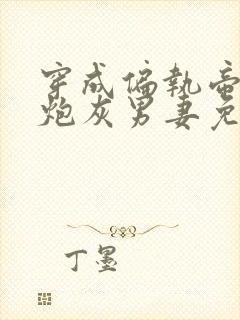 穿成偏執帝
炮灰男妻免
丁墨